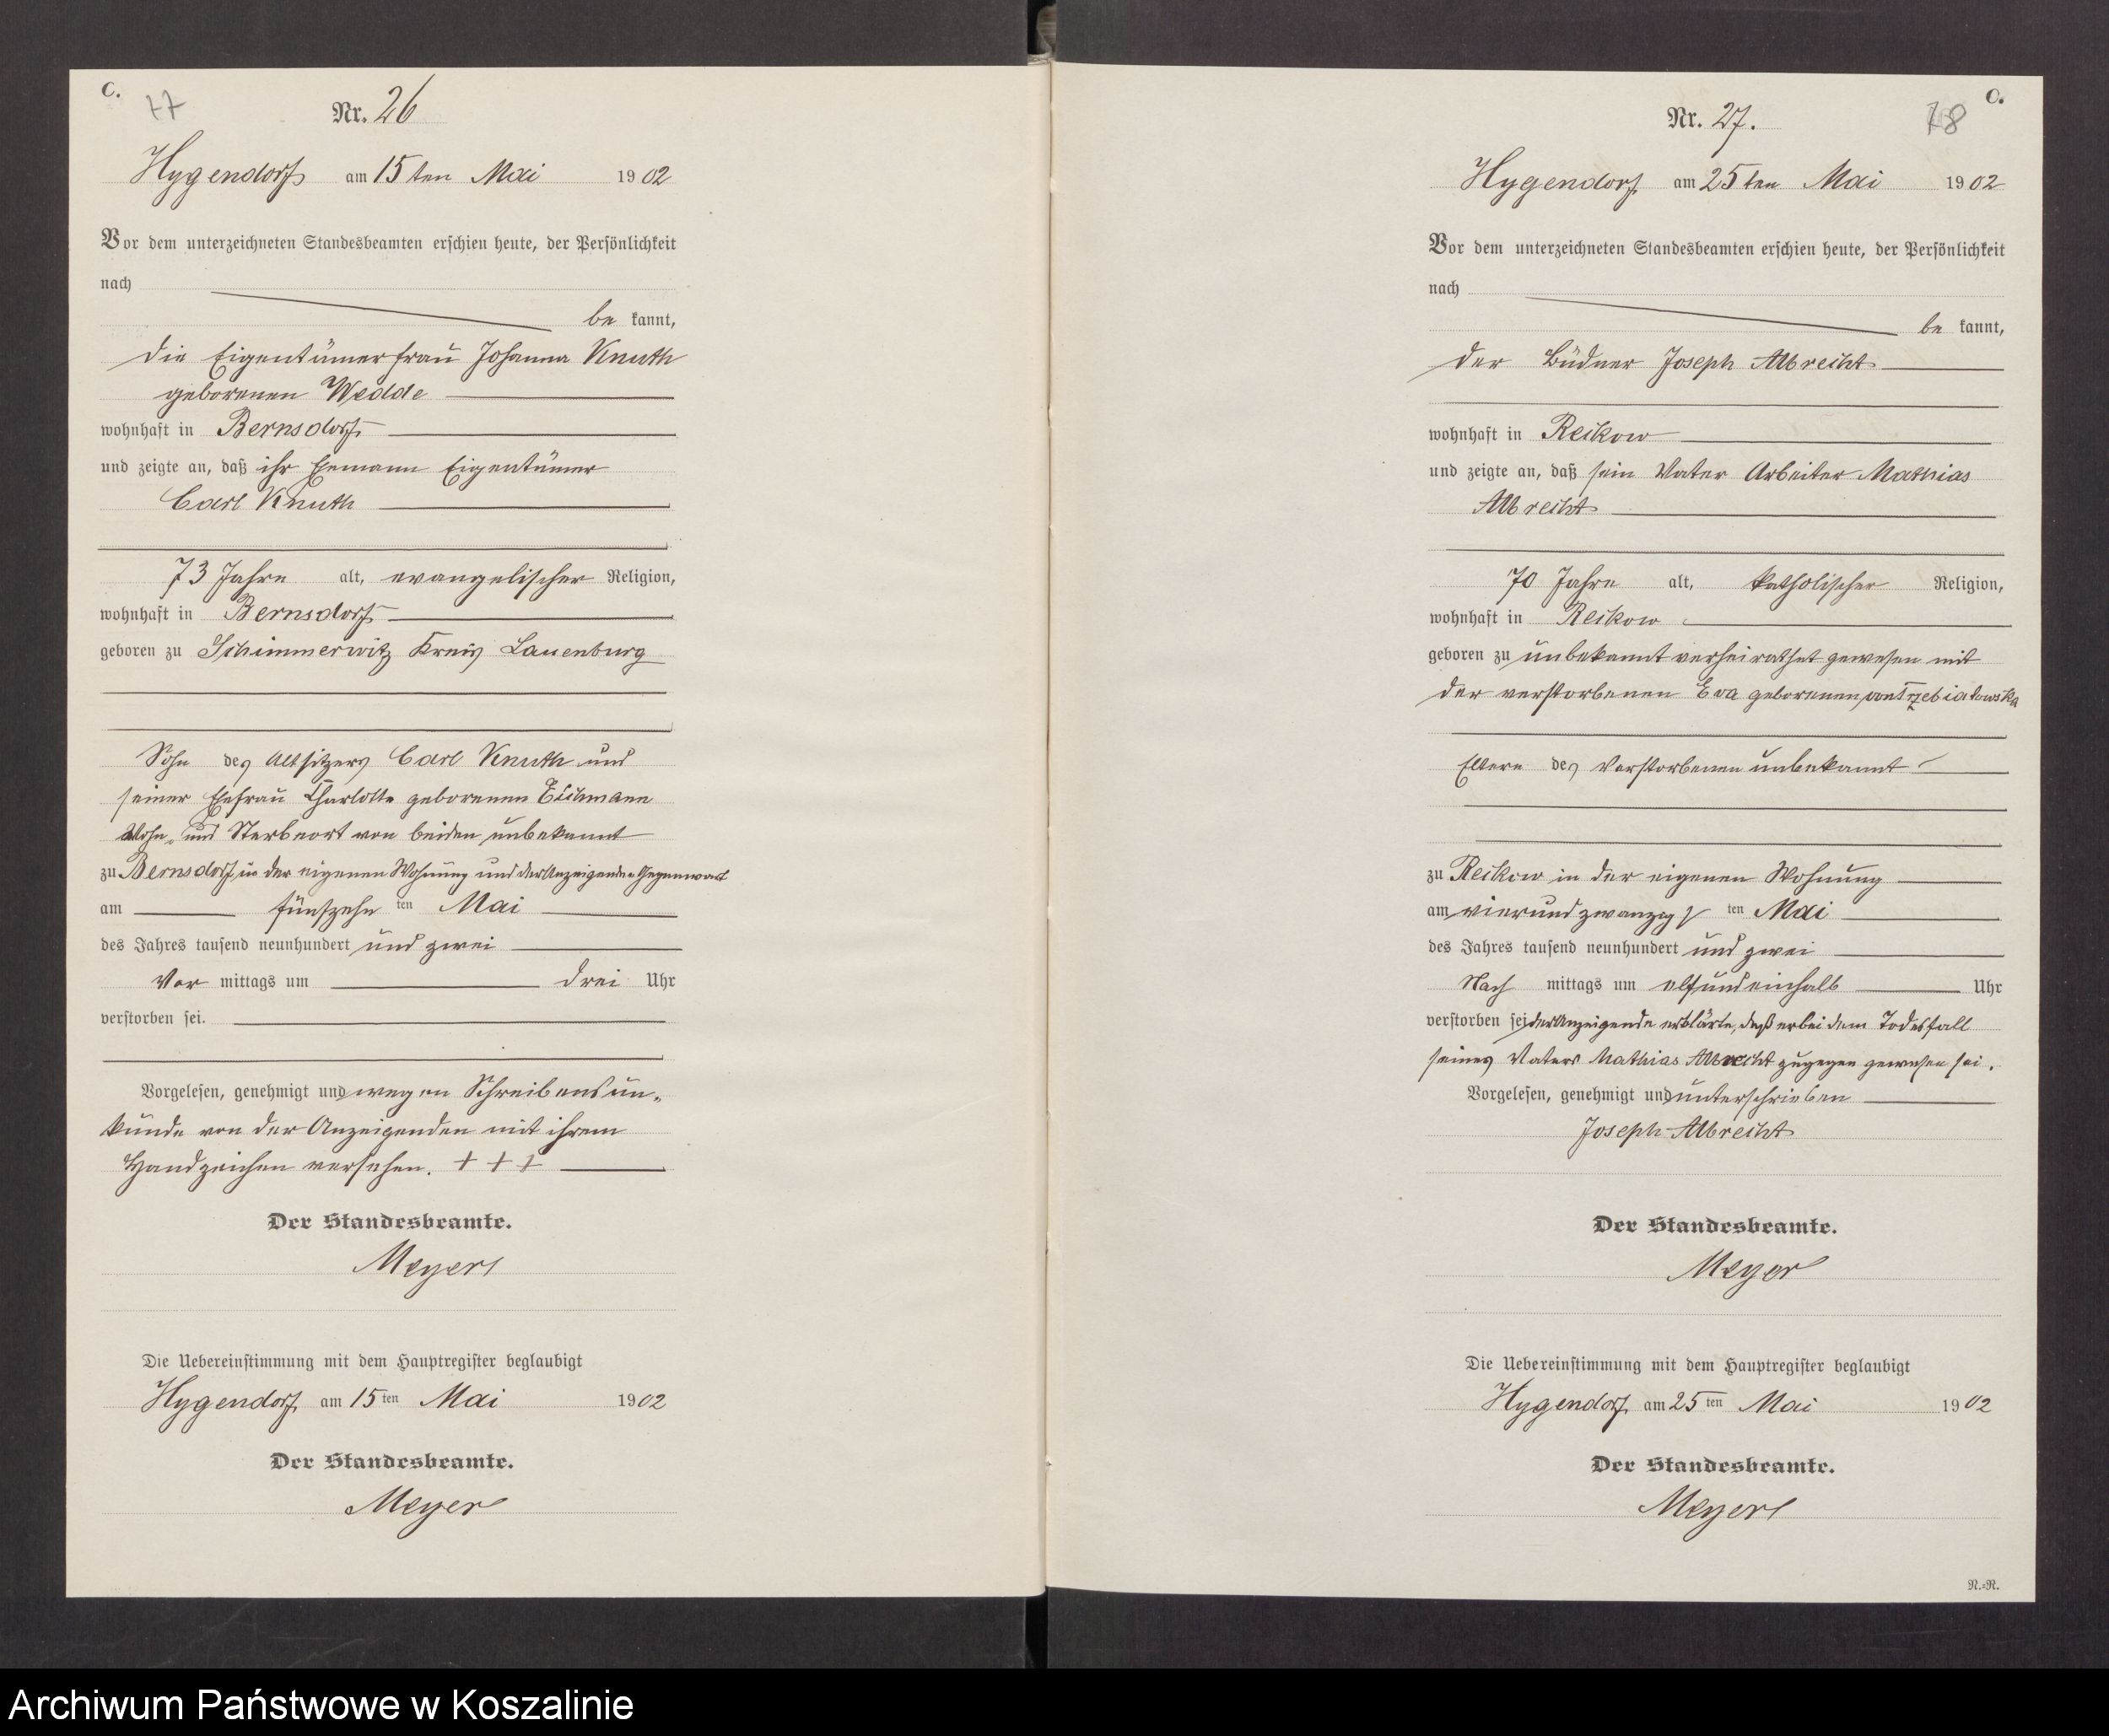 C.
77
Nr. 26
Hygendorf am 15ten Mai 1902
Vor dem unterzeichneten Standesbeamten erschien heute, der Persönlichkeit
nach
be kannt,
die Eigentümerfrau Johanna Knuth
geborenen Wedde
wohnhaft in Bernsdorf
und zeigte an, daß ihr Ehemann Eigentümer
Carl Knuth
73 Jahre alt, evangelischer Religion,
wohnhaft in Bernsdorf
geboren zu Schimmerwitz Kreis Lauenburg
Sohn des Altsitzers Carl Knuth und
seiner Ehefrau Charlotte geborenen Eichmann
Wohn- und Sterbeort von beiden unbekannt
zu Bernsdorf in der eigenen Wohnung und der Anzeigenden Gegenwart
am fünfzehn ten Mai
des Jahres tausend neunhundert und zwei
Vor mittags um drei Uhr
verstorben sei.
Vorgelesen, genehmigt und wegen Schreibensun-
kunde von der Anzeigenden mit ihrem
Handzeichen versehen. + + +
Der Standesbeamte.
Meyer
Die Uebereinstimmung mit dem Hauptregister beglaubigt
Hygendorf am 15ten Mai 1902
Der Standesbeamte.
Meyer
C.
78
Nr. 27.
Hygendorf am 25ten Mai 1902
Vor dem unterzeichneten Standesbeamten erschien heute, der Persönlichkeit
nach
be kannt,
der Büdner Joseph Albrecht
wohnhaft in Reikow
und zeigte an, daß sein Vater Arbeiter Mathias
Albrecht
70 Jahre alt, katholischer Religion,
wohnhaft in Reikow
geboren zu unbekannt verheirathet gewesen mit
der verstorbenen Eva geborenen von Trzebiatowska
Eltern des Verstorbenen unbekannt
zu Reikow in der eigenen Wohnung
am vierundzwanzigs ten Mai
des Jahres tausend neunhundert und zwei
Nach mittags um elfundeinhalb Uhr
verstorben sei der Anzeigende erklärte, daß er bei dem Todesfall
seines Vaters Mathias Albrecht zugegen gewesen sei.
Vorgelesen, genehmigt und unterschrieben
Joseph Albrecht
Der Standesbeamte.
Meyer
Die Uebereinstimmung mit dem Hauptregister beglaubigt
Hygendorf am 25ten Mai 1902
Der Standesbeamte.
Meyer
N.=N.
Archiwum Państwowe w Koszalinie